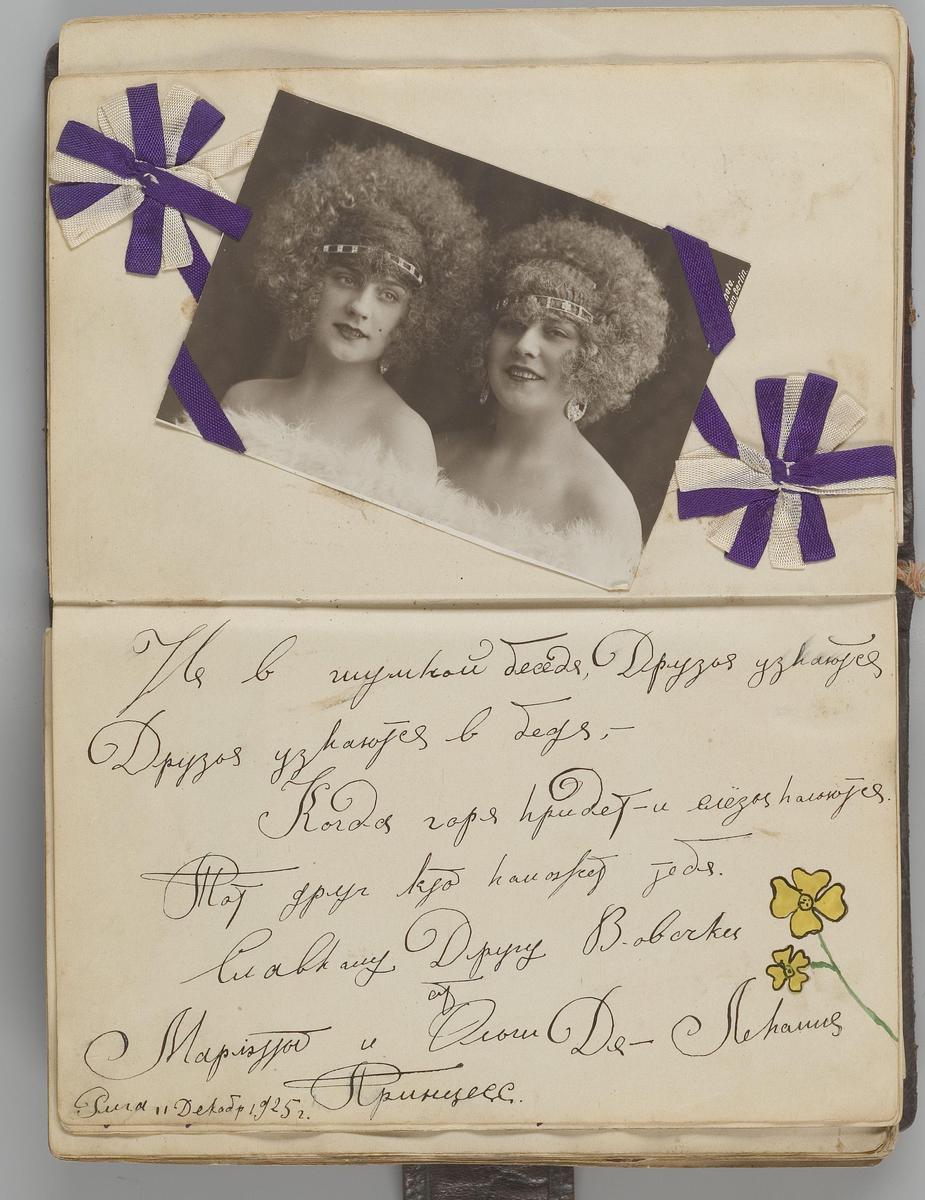 Не в шумной беседе, Друзья узнаются
Друзья узнаются в беде, –
Когда горя придет – и слёзы польются.
Тот друг кто поможет тебе.
Славному Другу Вовочки
от
и Де – 
Принцесс.
Рига 11 Декабр 1925 г.